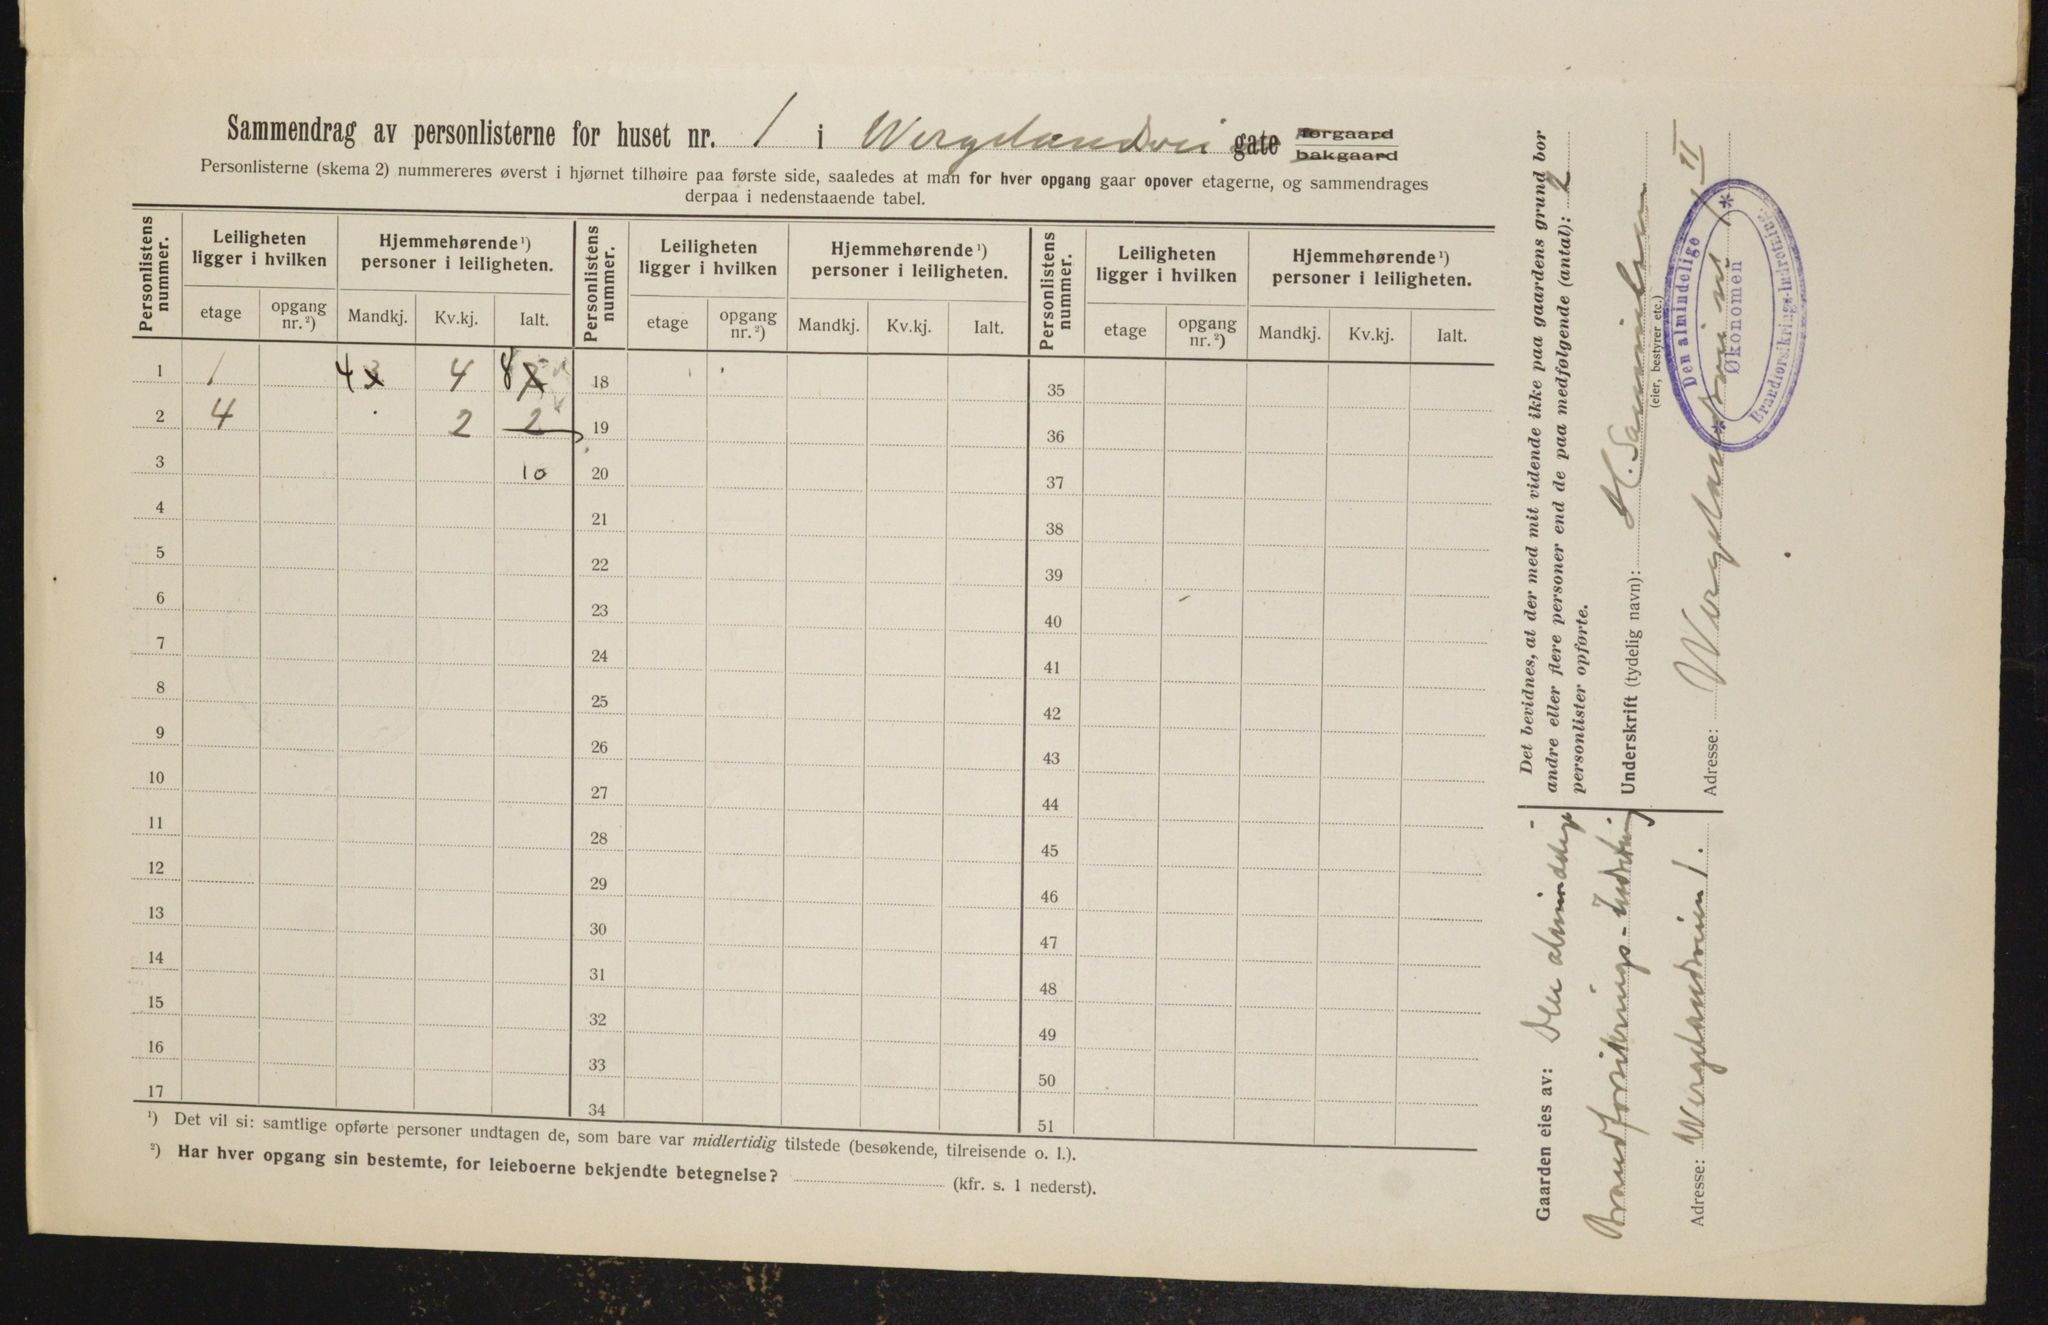 Sammendrag av personlisterne for huset nr. 1 i Wergelandsvei gate forgaard bakgaard
Personlisterne (skema 2) nummereres øverst i hjørnet tilhøire paa første side, saaledes at man for hver opgang gaar opover etagerne, og sammendrages
derpaa i nedenstaaende tabel.
Personlistens nummer. Leiligheten ligger i hvilken Hjemmehørende ¹) personer i leiligheten. Personlistens nummer. Leiligheten ligger i hvilken Hjemmehørende ¹) personer i leiligheten. Personlistens nummer. Leiligheten ligger i hvilken Hjemmehørende ¹) personer i leiligheten.
etage opgang nr. ²) Mandkj. Kv.kj. Ialt. etage opgang nr. ²) Mandkj. Kv.kj. Ialt. etage opgang nr. ²) Mandkj. Kv.kj. Ialt.
1 1 4 4 8 18 35
2 4 2 2 19 36
3 10 20 37
4 21 38
5 22 39
6 23 40
7 24 41
8 25 42
9 26 43
10 27 44
11 28 45
12 29 46
13 30 47
14 31 48
15 32 49
16 33 50
17 34 51
¹) Det vil si: samtlige opførte personer undtagen de, som bare var midlertidig tilstede (besøkende, tilreisende o. l.).
²) Har hver opgang sin bestemte, for leieboerne bekjendte betegnelse? (kfr. s. 1 nederst).
Det bevidnes, at der med mit vidende ikke paa gaardens grund bor
andre eller flere personer end de paa medfølgende (antal): 2
personlister opførte.
Underskrift (tydelig navn):
(eier, bestyrer etc.)
Adresse: Wergelandsveien 1 II
Den almindelige
Økonomen
Brandforsikrings-Indretning.
Gaarden eies av: Den almindelige
Brandforsikrings-Indretning
Adresse: Wergelandsveien 1.